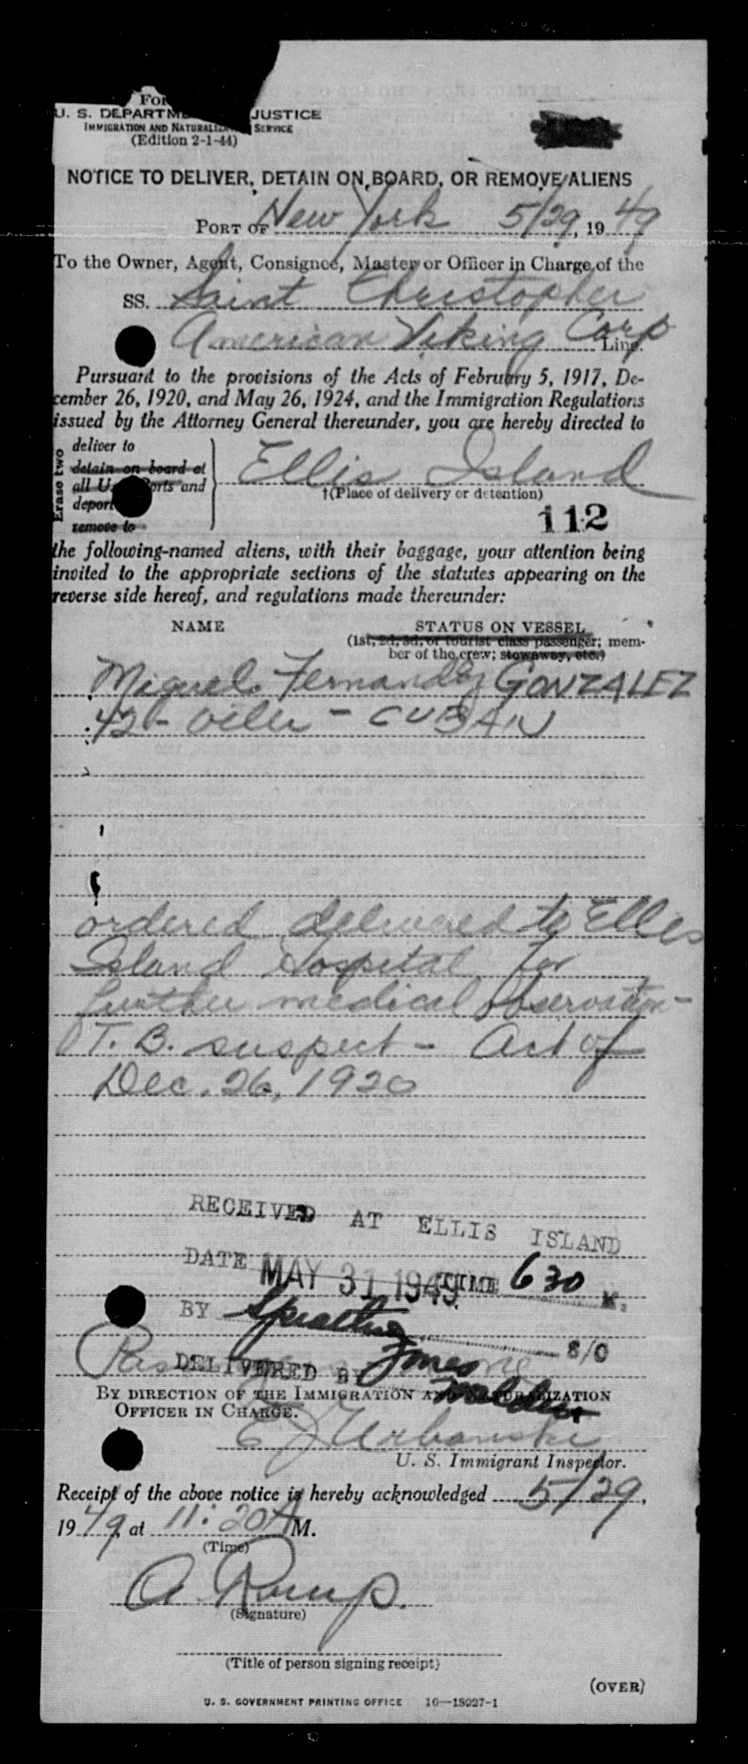 For
U. S. DEPARTM JUSTICE
IMMIGRATION AND NATURALIZ SERVICE
(Edition 2-1-44)
NOTICE TO DELIVER, DETAIN ON BOARD, OR REMOVE ALIENS
PORT OF New York 5/29, 1949
To the Owner, Agent, Consignee, Master or Officer in Charge of the
SS. Saint Christopher
American Viking Corp Line.
Pursuant to the provisions of the Acts of February 5, 1917, De-
cember 26, 1920, and May 26, 1924, and the Immigration Regulations
issued by the Attorney General thereunder, you are hereby directed to
Erase two
deliver to
detain on board at
all U. orts and
deport
remove to
Ellis Island
†(Place of delivery or detention)
112
the following-named aliens, with their baggage, your attention being
invited to the appropriate sections of the statutes appearing on the
reverse side hereof, and regulations made thereunder:
NAME STATUS ON VESSEL
(1st, 2d, 3d, or tourist class passenger; mem-
ber of the crew; stowaway, etc.)
Miguel Fernandez GONZALEZ
42 - oiler - CUBAN
ordered delivered to Ellis
Island Hospital for
further medical observation -
T. B. suspect - Act of
Dec. 26, 1920
RECEIVED AT ELLIS ISLAND
DATE MAY 31 1949 TIME 630 M.
BY
S/O
DELIVERED BY Jones
BY DIRECTION OF THE IMMIGRATION AND NATURALIZATION
OFFICER IN CHARGE.
E J Urbanski
U. S. Immigrant Inspector.
Receipt of the above notice is hereby acknowledged 5/29,
1949, at 11:20 A M.
(Time)
(Signature)
(Title of person signing receipt)
(OVER)
U. S. GOVERNMENT PRINTING OFFICE 16—18027-1